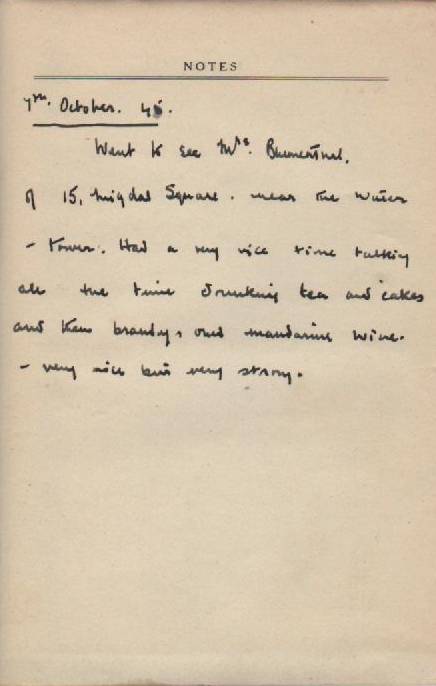 NOTES
7th. October. 45.
Went to see Mrs.
of 15, Migdal Square. near the water
- tower. Had a very nice time talking
all the time drinking tea and cakes
and then brandy, and mandarine wine.
- very nice but very strong.